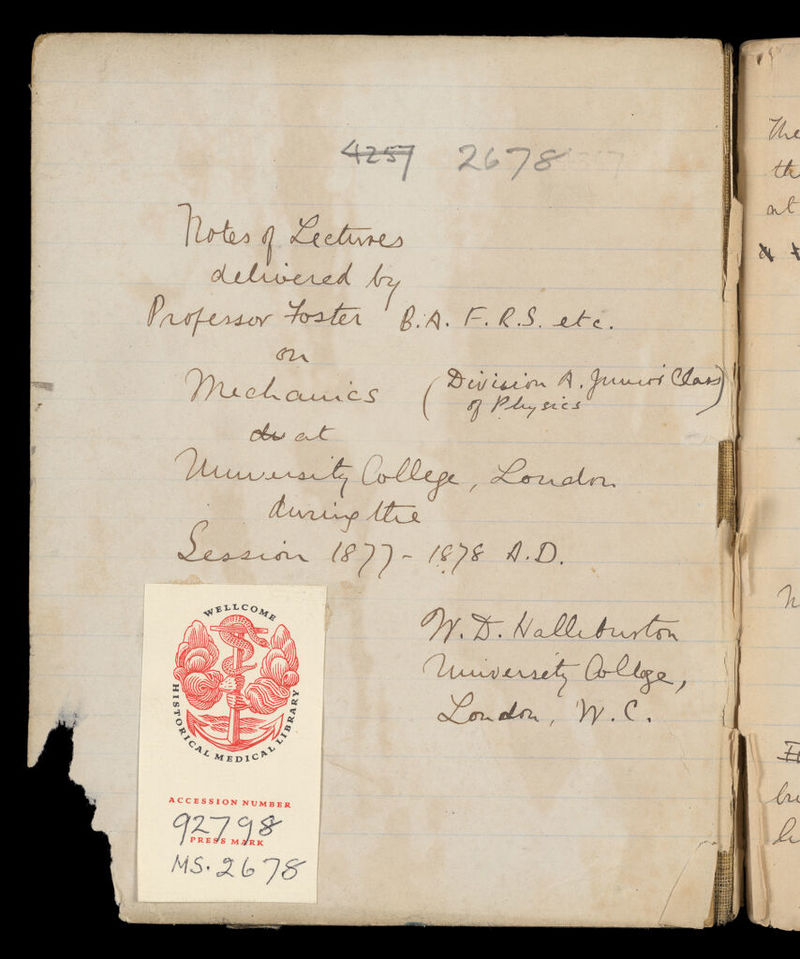 4257 2678
Notes of Lectures
delivered by
Professor Foster B.A. F.R.S. etc.
on
Mechanics (Division A. Junior Class
of Physics)
at
University College, London
during the
Session 1877-1878 A.D.
W. D. Halliburton
University College,
London, W.C.
WELLCOME
HISTORICAL MEDICAL LIBRARY
ACCESSION NUMBER
92798
PRESS MARK
MS. 2678
The
at